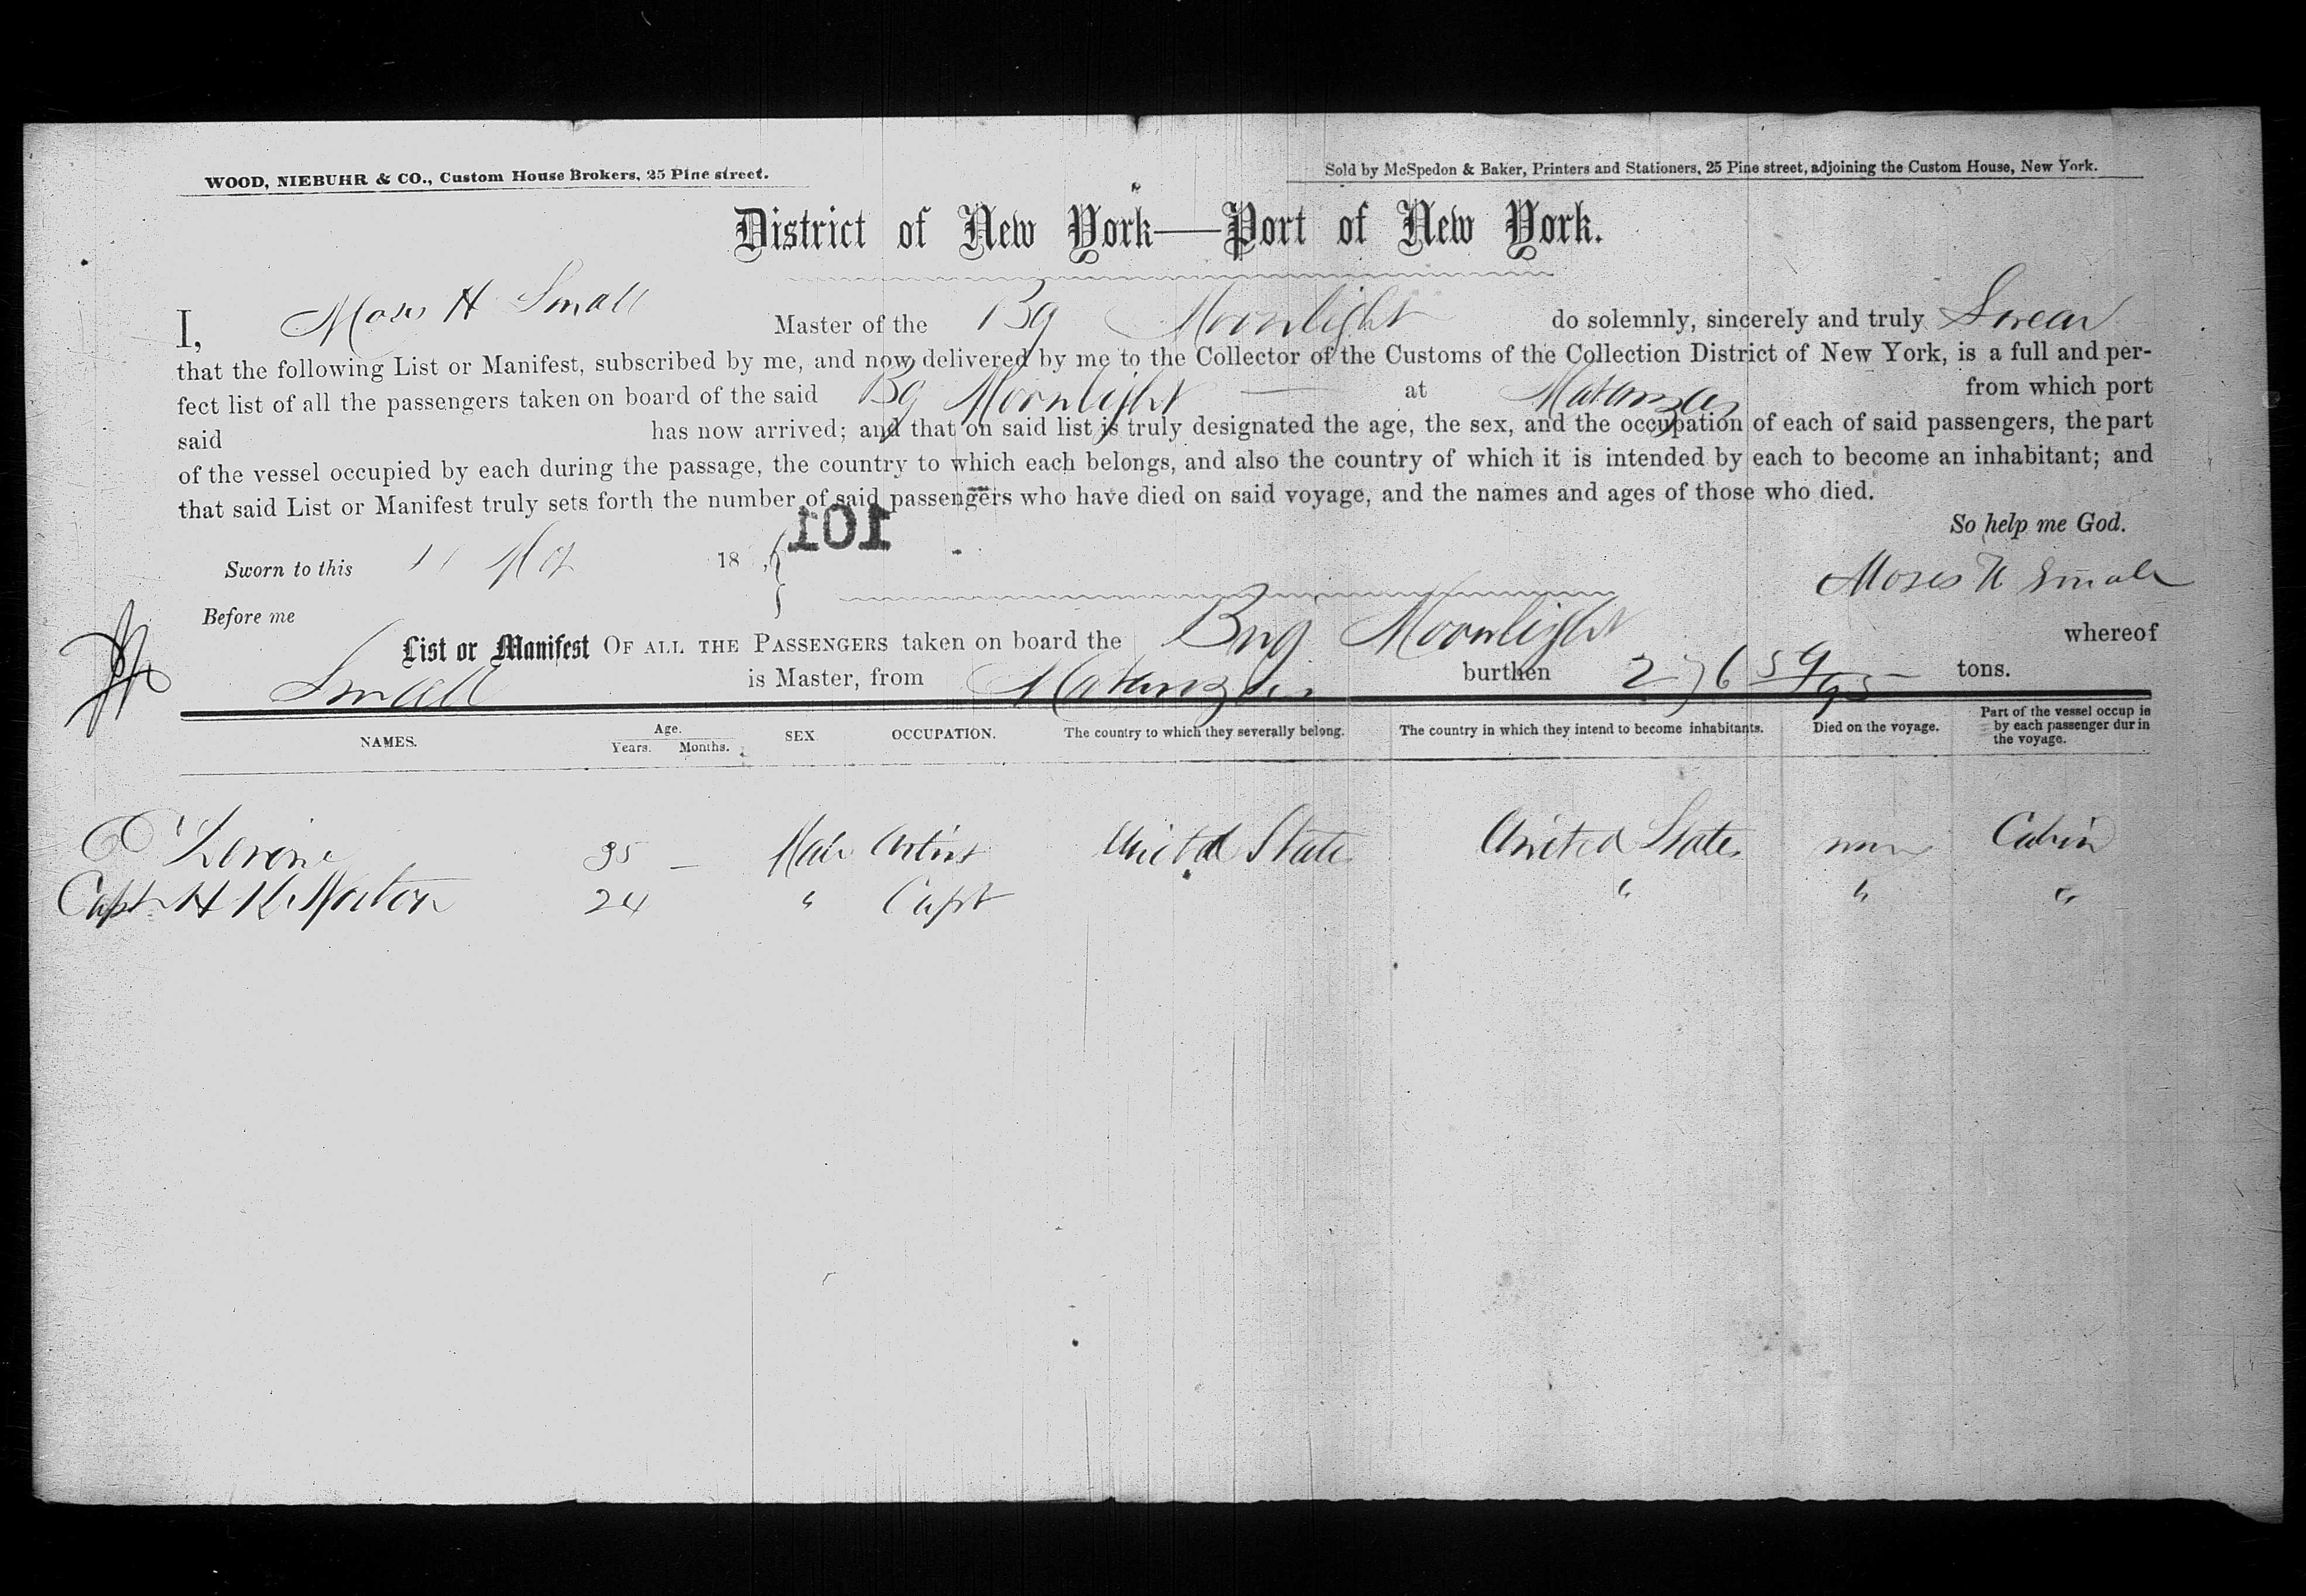 WOOD, NIEBUHR & CO., Custom House Brokers, 25 Pine street.
Sold by McSpedon & Baker, Printers and Stationers, 25 Pine street, adjoining the Custom House, New York.
District of New York—Port of New York.
I, Moses H Small Master of the Bg Moonlight do solemnly, sincerely and truly Swear
that the following List or Manifest, subscribed by me, and now delivered by me to the Collector of the Customs of the Collection District of New York, is a full and per-
fect list of all the passengers taken on board of the said Bg Moonlight — at Matanzas from which port
said has now arrived; and that on said list is truly designated the age, the sex, and the occupation of each of said passengers, the part
of the vessel occupied by each during the passage, the country to which each belongs, and also the country of which it is intended by each to become an inhabitant; and
that said List or Manifest truly sets forth the number of said passengers who have died on said voyage, and the names and ages of those who died.
101
So help me God.
Sworn to this 11 18
Moses H Small
Before me
List or Manifest OF ALL THE PASSENGERS taken on board the Brig Moonlight whereof
Small is Master, from Matanzas burthen 276 59/95 tons.
NAMES. Age. Years. Months. SEX OCCUPATION. The country to which they severally belong. The country in which they intend to become inhabitants. Died on the voyage. Part of the vessel occup ie by each passenger dur in the voyage.
35 — Male Artist United States United States Cabin
Capt H K 24 " Capt " " "